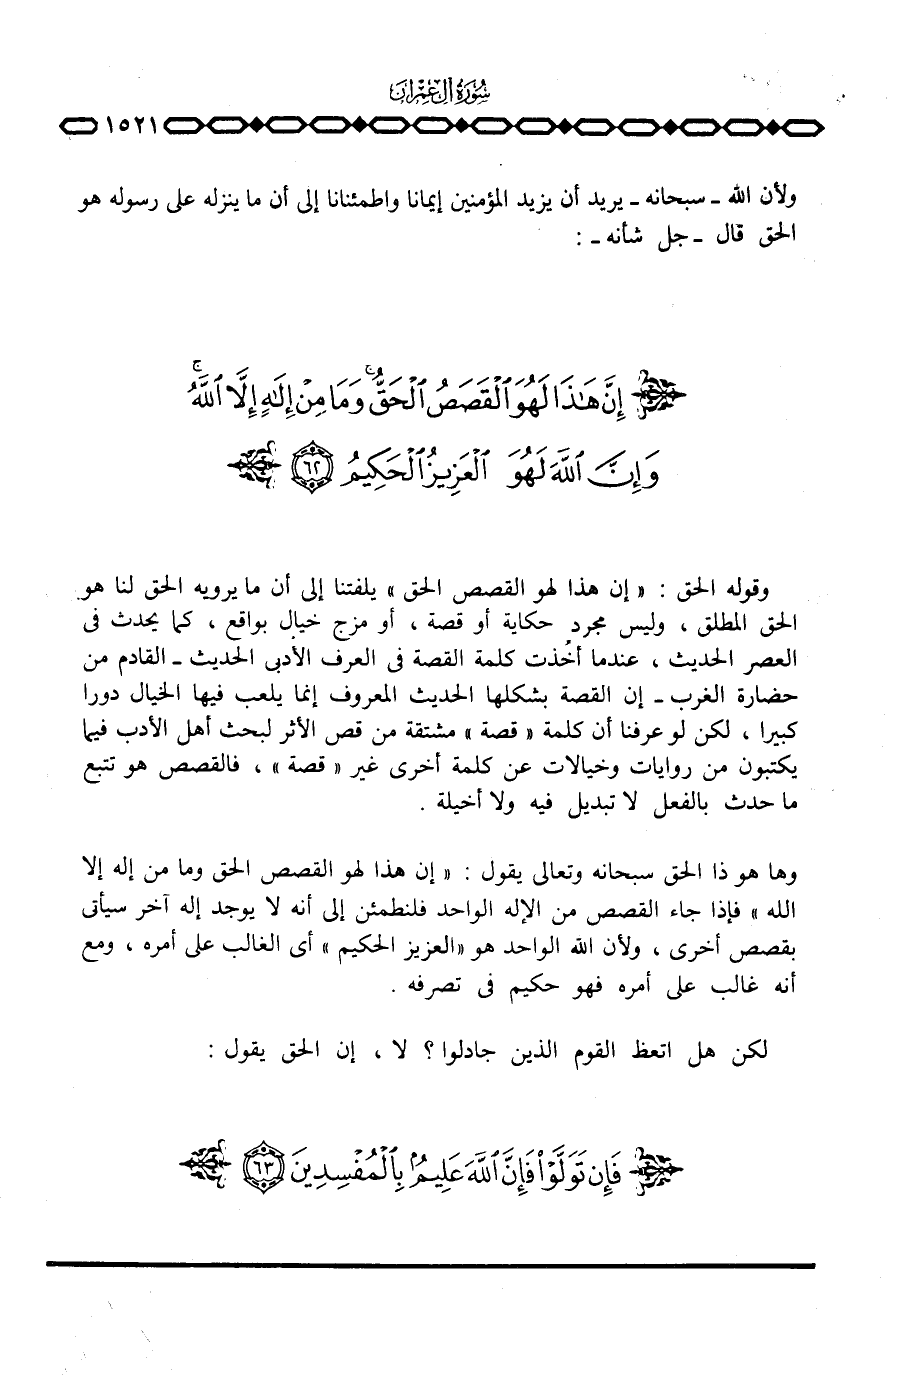 سُورَةُ آلِ عِمْرَانَ
١٥٢١
ولأن الله ـ سبحانه ـ يريد أن يزيد المؤمنين إيمانا واطمئنانا إلى أن ما ينزله على رسوله هو
الحق قال ـ جل شأنه ـ :
إِنَّ هَٰذَا لَهُوَ ٱلْقَصَصُ ٱلْحَقُّ ۚ وَمَا مِنْ إِلَٰهٍ إِلَّا ٱللَّهُ ۚ
وَإِنَّ ٱللَّهَ لَهُوَ ٱلْعَزِيزُ ٱلْحَكِيمُ ٦٢
وقوله الحق : « إن هذا لهو القصص الحق » يلفتنا إلى أن ما يرويه الحق لنا هو
الحق المطلق ، وليس مجرد حكاية أو قصة ، أو مزج خيال بواقع ، كما يحدث فى
العصر الحديث ، عندما أُخذت كلمة القصة فى العرف الأدبى الحديث ـ القادم من
حضارة الغرب ـ إن القصة بشكلها الحديث المعروف إنما يلعب فيها الخيال دورا
كبيرا ، لكن لو عرفنا أن كلمة « قصة » مشتقة من قص الأثر لبحث أهل الأدب فيما
يكتبون من روايات وخيالات عن كلمة أخرى غير « قصة » ، فالقصص هو تتبع
ما حدث بالفعل لا تبديل فيه ولا أخيلة .
وها هو ذا الحق سبحانه وتعالى يقول : « إن هذا لهو القصص الحق وما من إله إلا
الله » فإذا جاء القصص من الإله الواحد فلنطمئن إلى أنه لا يوجد إله آخر سيأتى
بقصص أخرى ، ولأن الله الواحد هو «العزيز الحكيم » أى الغالب على أمره ، ومع
أنه غالب على أمره فهو حكيم فى تصرفه .
لكن هل اتعظ القوم الذين جادلوا ؟ لا ، إن الحق يقول :
فَإِن تَوَلَّوْا۟ فَإِنَّ ٱللَّهَ عَلِيمٌۢ بِٱلْمُفْسِدِينَ ٦٣